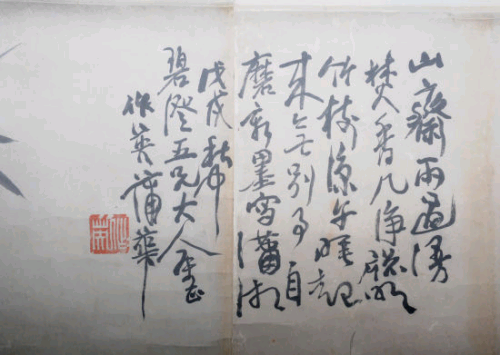 山齋雨過漫
焚香几淨窗明
竹樹涼午睡起
來無別事自
磨新墨寫瀟湘
戊戌秋仲
碧澄五兄大人正
作英蒲華